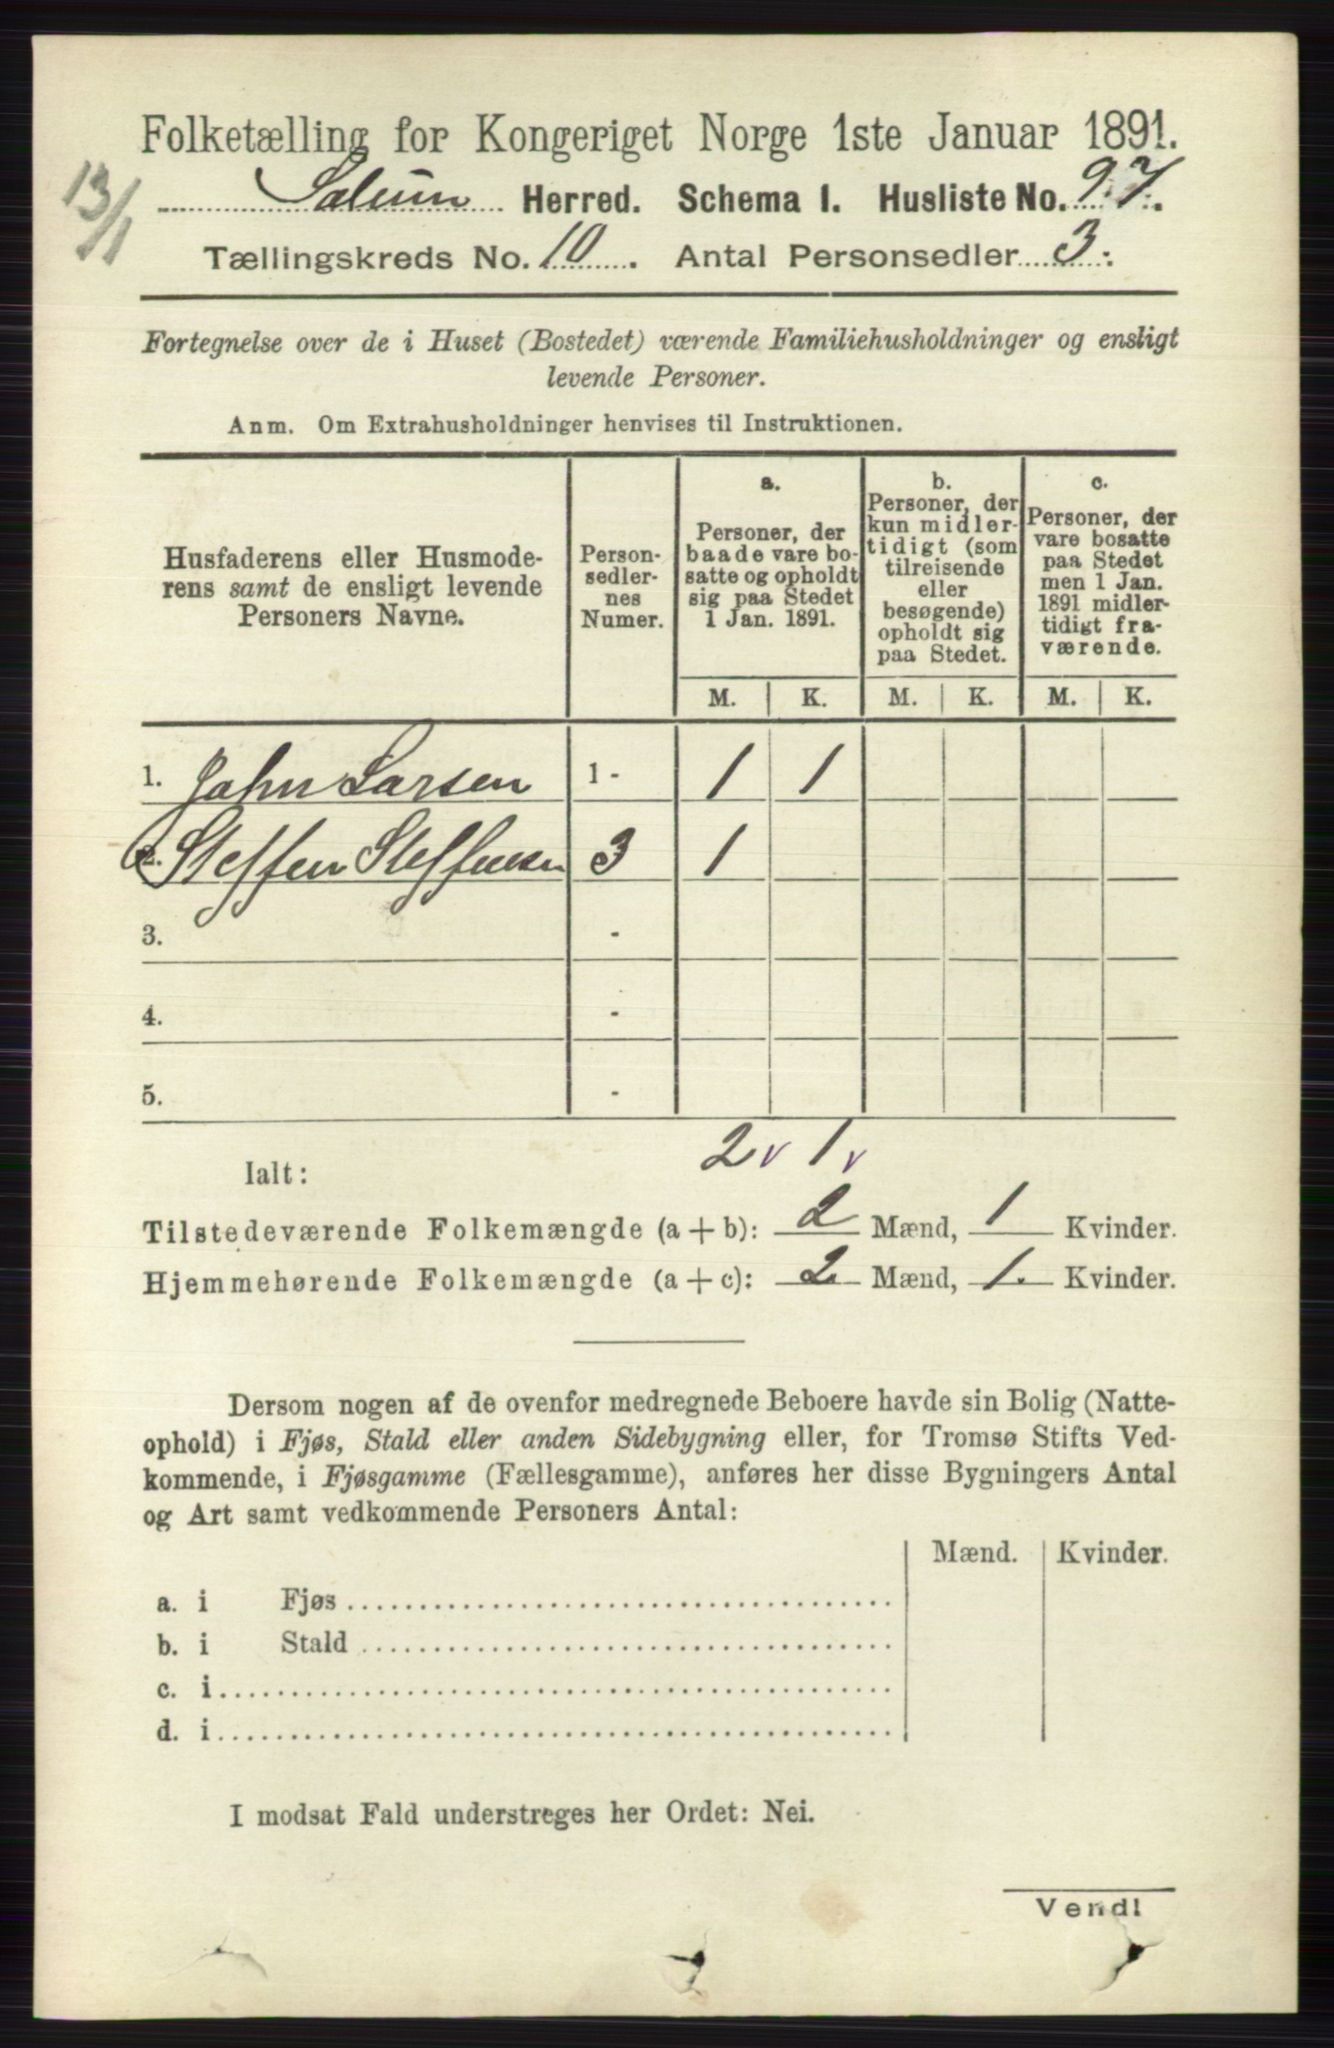 Folketælling for Kongeriget Norge 1ste Januar 1891.
13/1
Solum Herred. Schema 1. Husliste No. 97.
Tællingskreds No. 10. Antal Personsedler 3.
Fortegnelse over de i Huset (Bostedet) værende Familiehusholdninger og ensligt
levende Personer.
Anm. Om Extrahusholdninger henvises til Instruktionen.
Husfaderens eller Husmode-
rens samt de ensligt levende
Personers Navne.
Person-
sedler-
nes
Numer.
a.
Personer, der
baade vare bo-
satte og opholdt
sig paa Stedet
1 Jan. 1891.
b.
Personer, der
kun midler-
tidigt (som
tilreisende
eller
besøgende)
opholdt sig
paa Stedet.
c.
Personer, der
vare bosatte
paa Stedet
men 1 Jan.
1891 midler-
tidigt fra-
værende.
M. K. M. K. M. K.
1. John Larsen 1 - 1 1
2. Steffen Steffensen 3 1
3. -
4. -
5. -
2 1
Ialt:
Tilstedeværende Folkemængde (a + b): 2 Mænd, 1 Kvinder.
Hjemmehørende Folkemængde (a + c): 2 Mænd, 1 Kvinder.
Dersom nogen af de ovenfor medregnede Beboere havde sin Bolig (Natte-
ophold) i Fjøs, Stald eller anden Sidebygning eller, for Tromsø Stifts Ved-
kommende, i Fjøsgamme (Fællesgamme), anføres her disse Bygningers Antal
og Art samt vedkommende Personers Antal:
Mænd. Kvinder.
a. i Fjøs
b. i Stald
c. i
d. i
I modsat Fald understreges her Ordet: Nei.
Vend!